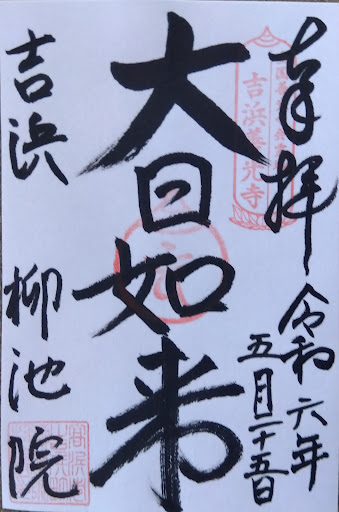 奉拝
令和六年
五月二十五日
大日如来
吉浜
柳池院
吉浜善光寺